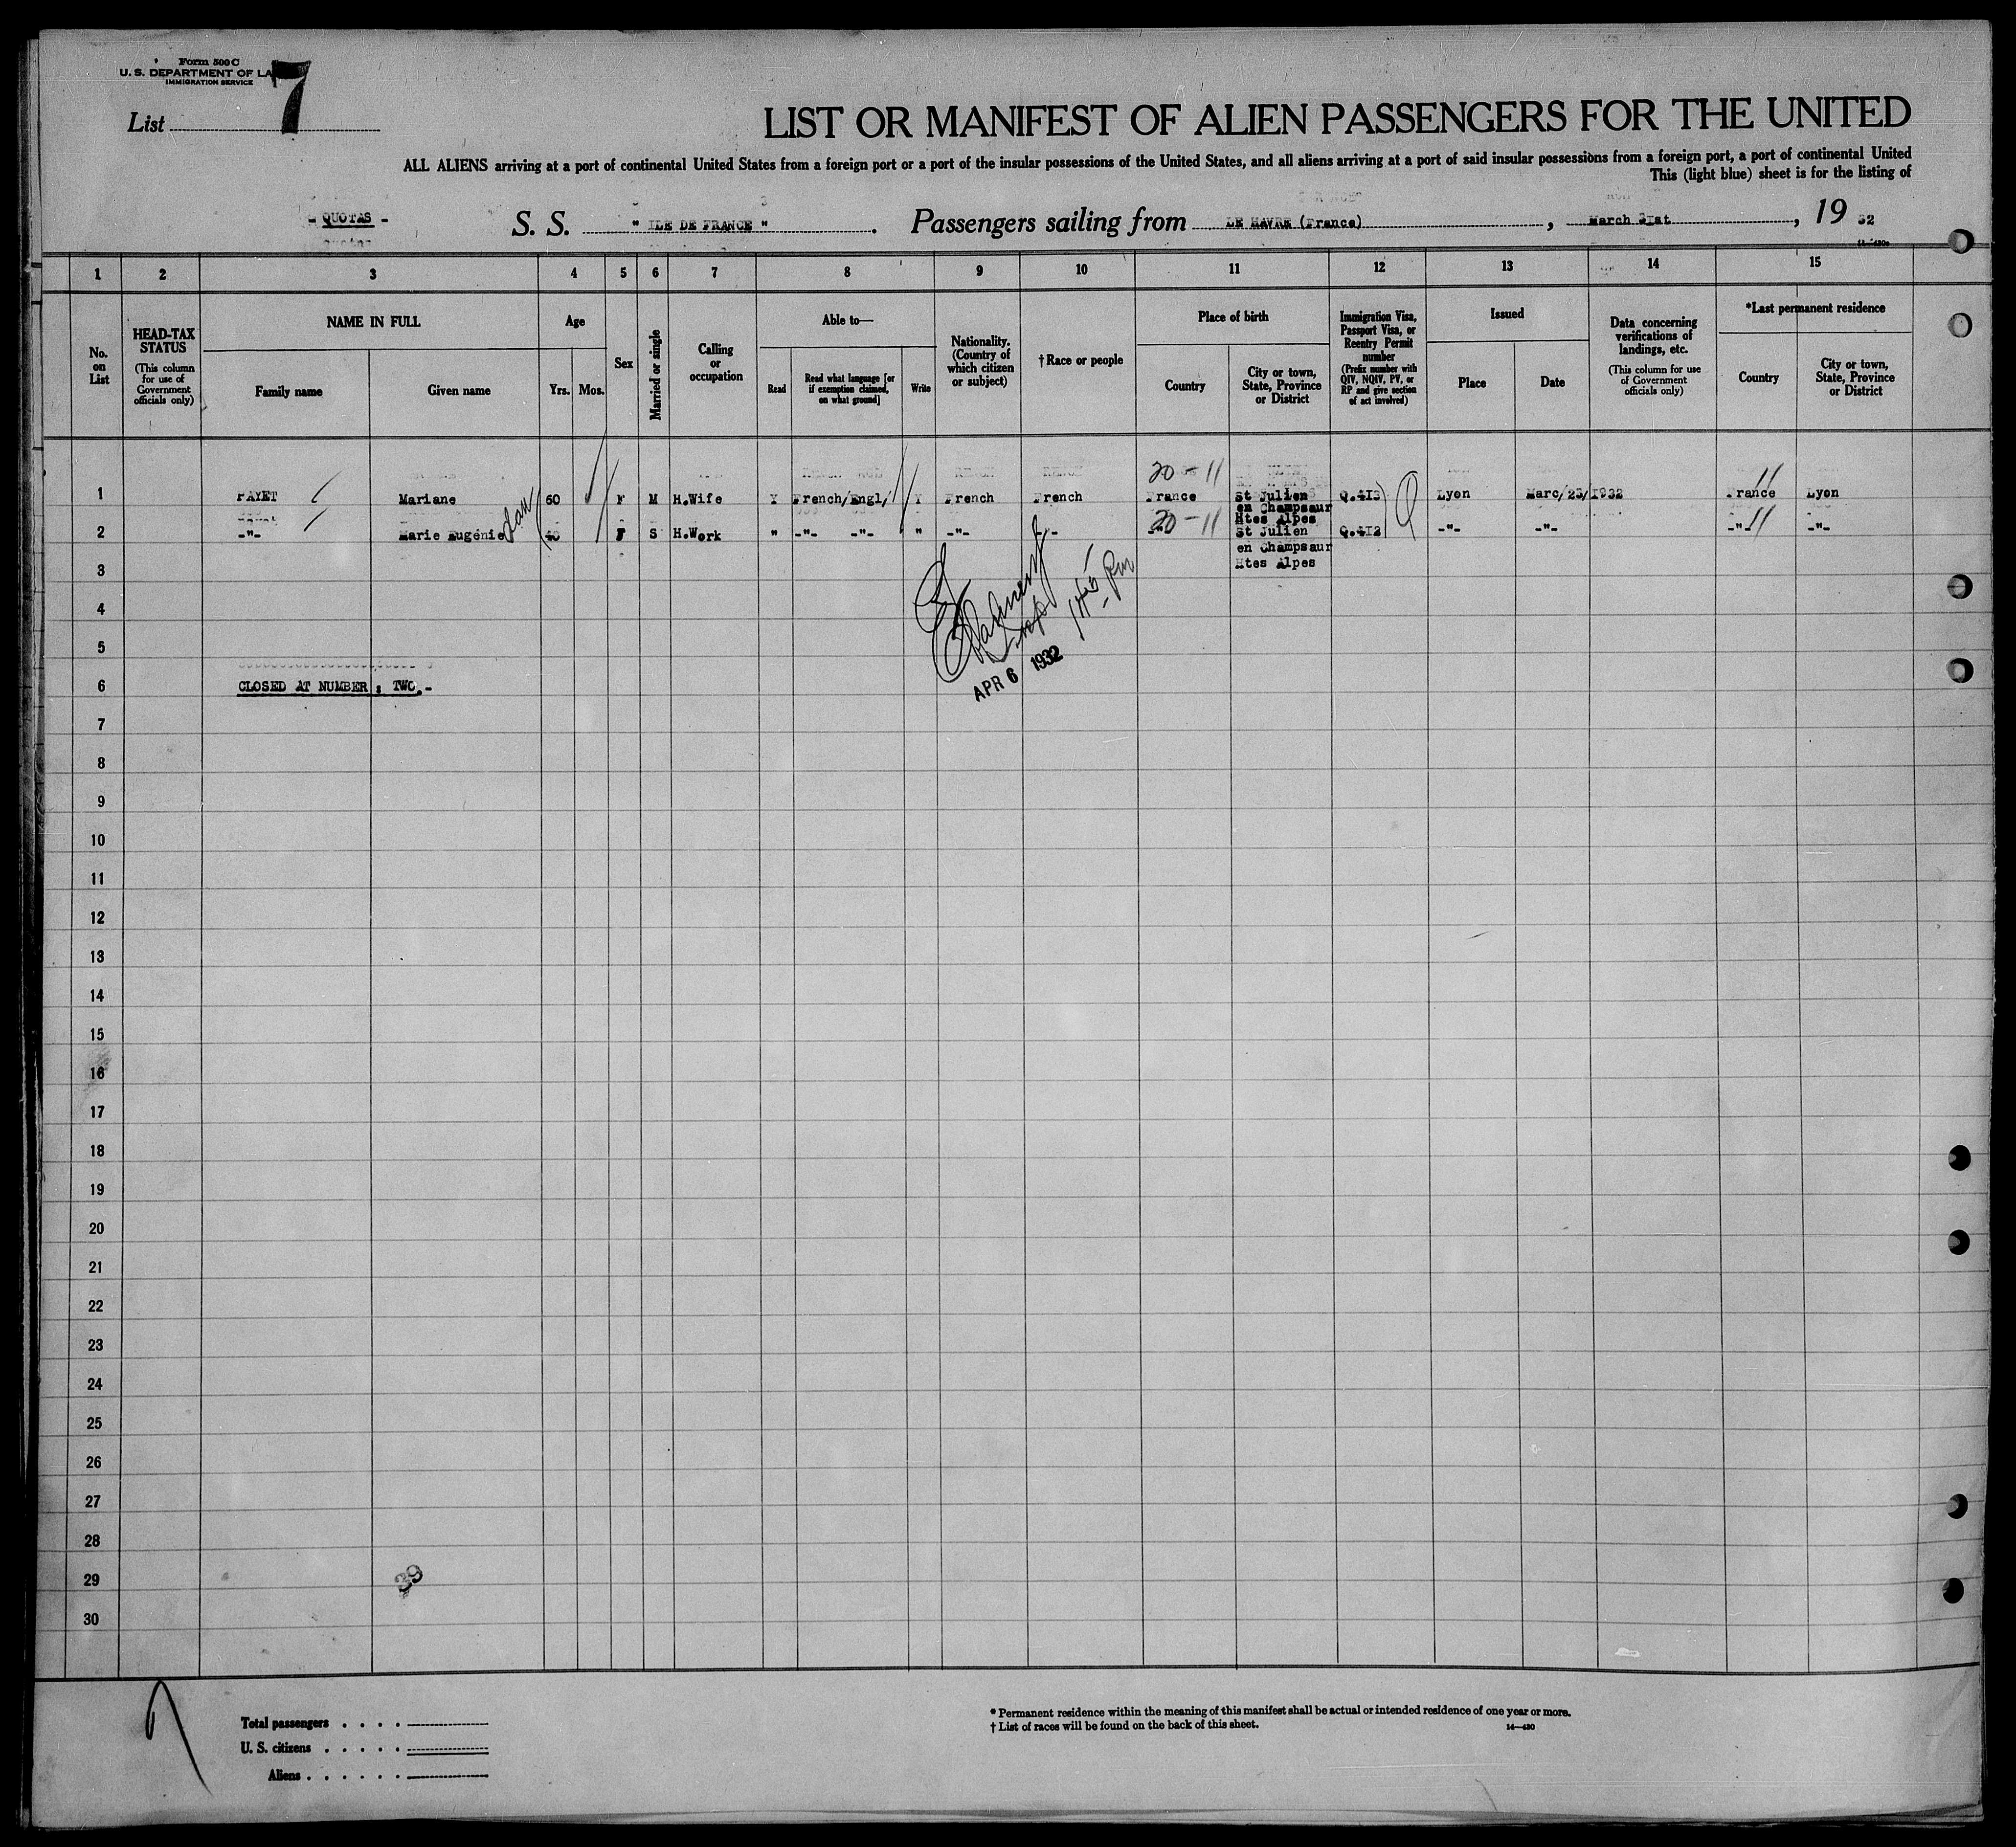 Form 500 C
U. S. DEPARTMENT OF LA
IMMIGRATION SERVICE
List 7
LIST OR MANIFEST OF ALIEN PASSENGERS FOR THE UNITED
ALL ALIENS arriving at a port of continental United States from a foreign port or a port of the insular possessions of the United States, and all aliens arriving at a port of said insular possessions from a foreign port, a port of continental United
This (light blue) sheet is for the listing of
- QUOTAS - S. S. " ILE DE FRANCE " . Passengers sailing from LE HAVRE (France) , March 3Ist , 19 32
1 2 3 4 5 6 7 8 9 10 11 12 13 14 15
No. on List
HEAD-TAX STATUS
(This column for use of Government officials only)
NAME IN FULL
Family name
Given name
Age
Yrs. Mos.
Sex
Married or single
Calling or occupation
Able to—
Read
Read what language [or if exemption claimed, on what ground]
Write
Nationality. (Country of which citizen or subject)
†Race or people
Place of birth
Country
City or town, State, Province or District
Immigration Visa, Passport Visa, or Reentry Permit number
(Prefix number with QIV, NQIV, PV, or RP and give section of act involved)
Issued
Place
Date
Data concerning verifications of landings, etc.
(This column for use of Government officials only)
*Last permanent residence
Country
City or town, State, Province or District
20 - 11
1 PAYET Mariane 60 F M H.Wife Y French/Engl/ Y French French France St Julien Q.4I3 Lyon Marc/23/1932 France Lyon
en Champsaur
Htes Alpes
20 - 11
2 -"- Marie Eugénie F S H.Work " -"- -"- " -"- St Julien Q.4I2 -"- -"- -"- -"-
en Champsaur
3 Htes Alpes
4
5
1932
APR 6
6 CLOSED AT NUMBER : TWO.-
7
8
9
10
11
12
13
14
15
16
17
18
19
20
21
22
23
24
25
26
27
28
29 39
30
Total passengers . . . .
U. S. citizens . . . . .
Aliens . . . . . .
* Permanent residence within the meaning of this manifest shall be actual or intended residence of one year or more.
† List of races will be found on the back of this sheet. 14—430